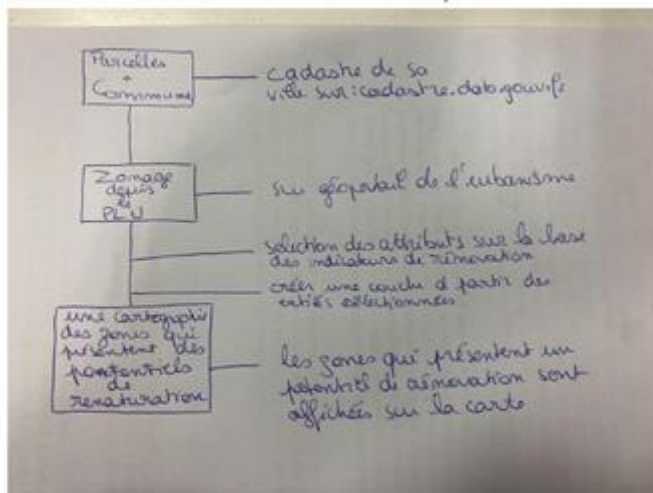 Parcelles
+
Commune
cadastre de sa
ville sur: cadastre.data.gouv.fr
Zonage
depuis
le
PLU
sur géoportail de l'urbanisme
sélection des attributs sur la base
des indicateurs de rénovation
créer une couche à partir des
entités sélectionnées
une cartographie
des zones qui
présentent des
potentiels
de
renaturation
les zones qui présentent un
potentiel de rénovation sont
affichées sur la carte